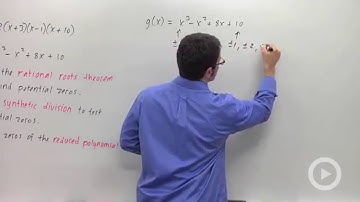 (x+3)(x-1)(x+10)
g(x) = x³-x²+8x+10
³-x²+8x+10
±1, ±2,
the rational roots theorem
find potential zeros.
synthetic division to test
tial zeros.
zeros of the reduced polynomial